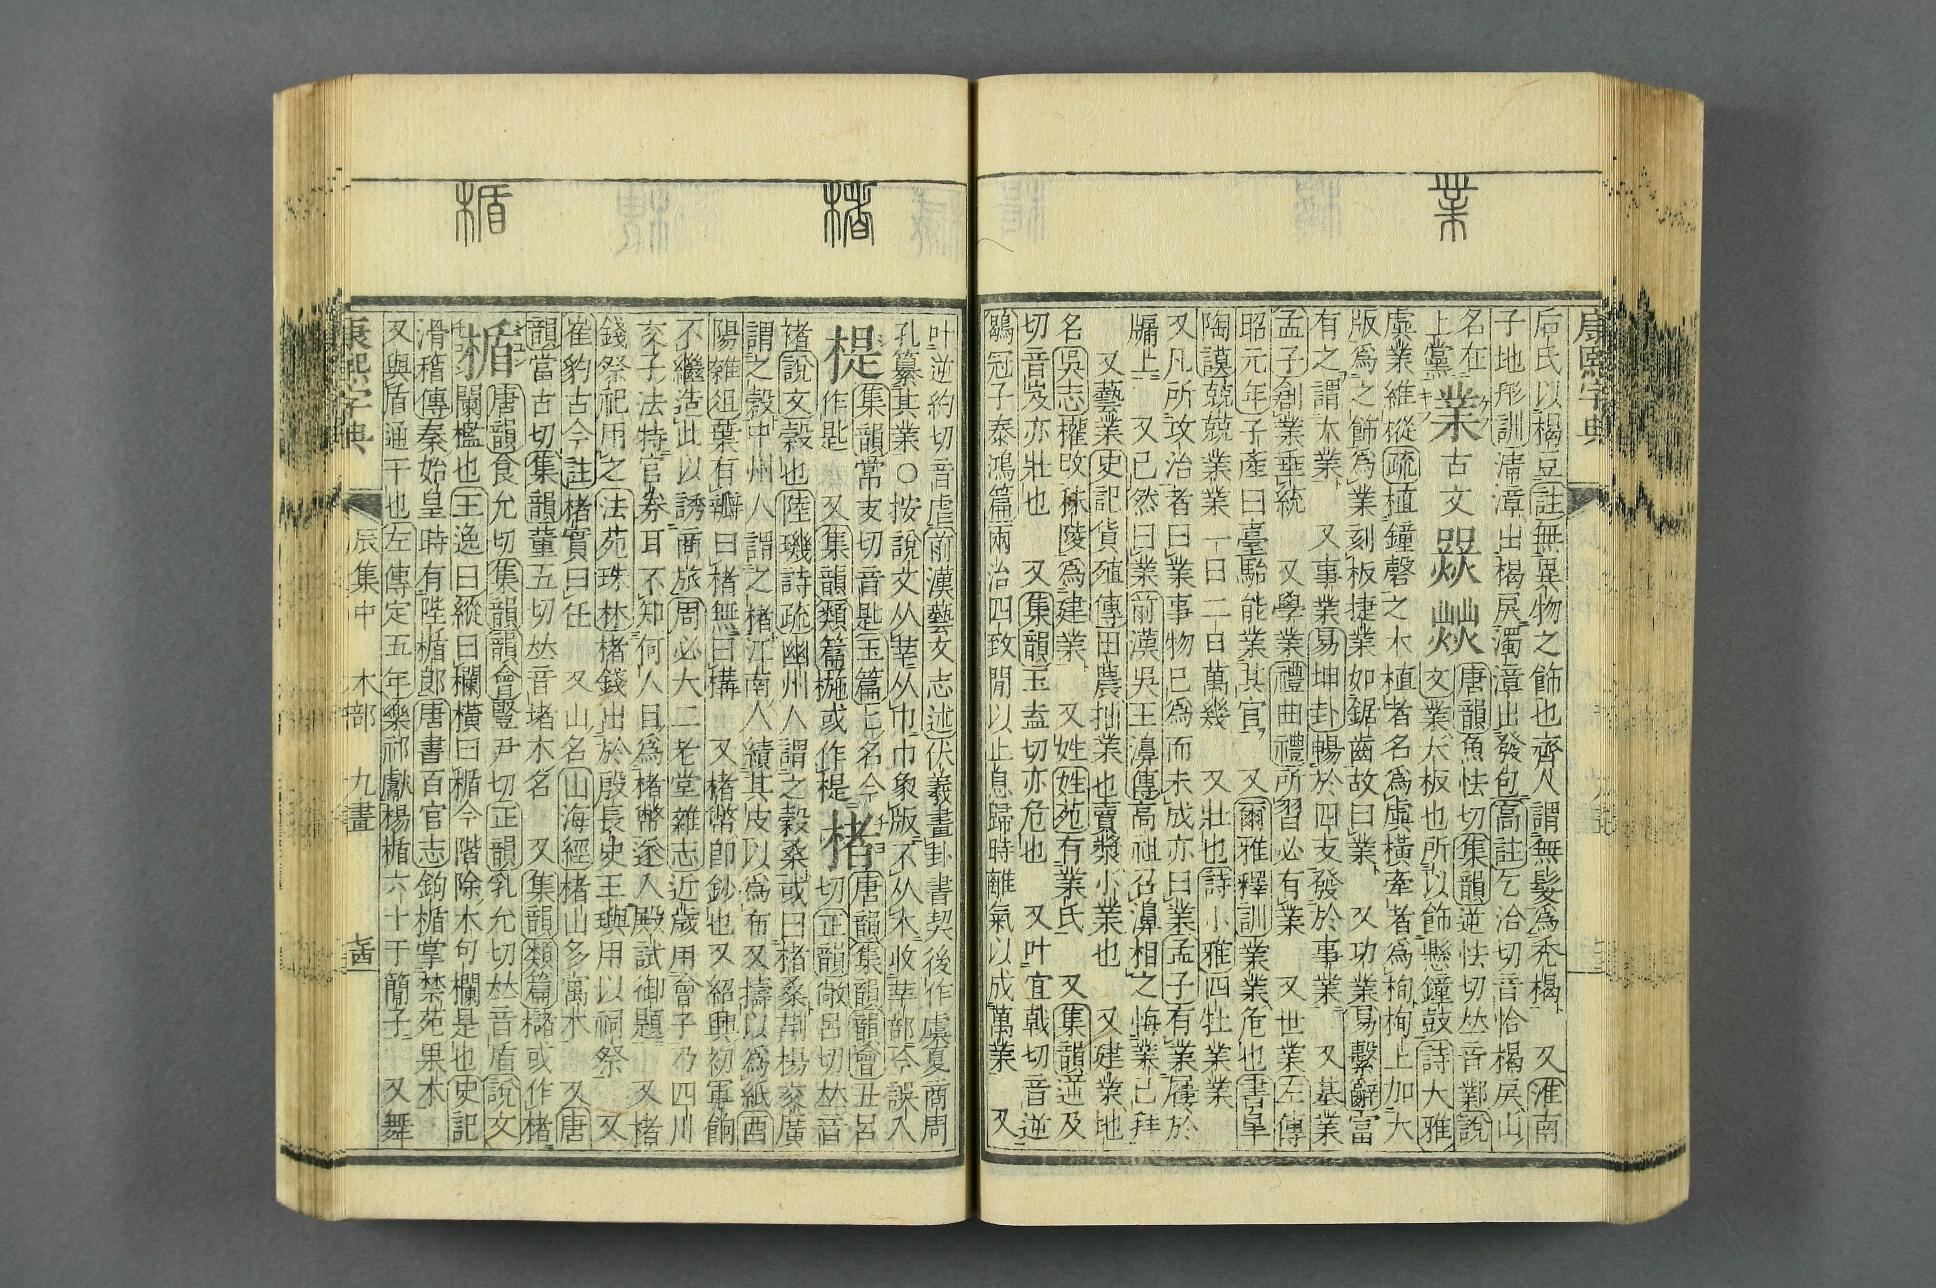 業
康熙字典
后氏以楬豆註無異物之飾也齊人謂無髮爲禿楬　又淮南
子地形訓淸漳出楬戾濁漳出發包高註乞洽切音恰楬戾山
名在
上黨
業古文
唐韻魚怯切集韻逆怯切𠀤音鄴說
文業大板也所以飾懸鐘鼓詩大雅
虡業維樅疏植鐘磬之木植者名爲虡橫牽者爲栒栒上加大
版爲之飾爲業刻板捷業如鋸齒故曰業　又功業易繫辭富
有之謂大業　又事業易坤卦暢於四支發於事業　又基業
孟子創業垂統　又學業禮曲禮所習必有業　又世業左傳
昭元年子產曰臺駘能業其官　又爾雅釋訓業業危也書皐
陶謨兢兢業業一日二日萬幾　又壯也詩小雅四牡業業
又凡所攻治者曰業事物已爲而未成亦曰業孟子有業屨於
牖上　又已然曰業前漢吳王濞傳高祖召濞相之悔業已拜
又藝業史記貨殖傳田農拙業也賣漿小業也　又建業地
名吳志權改秣陵爲建業　又姓姓苑有業氏　又集韻逆及
切音岌亦壯也　又集韻玉盍切亦危也　又叶宜戟切音逆
鶡冠子泰鴻篇兩治四致閒以止息歸時離氣以成萬業　又
楮
楯
叶逆約切音虐前漢藝文志述伏羲畫卦書契後作虞夏商周
孔纂其業○按說文从丵从巾巾象版不从木收丵部今誤入
楴
集韻常支切音匙玉篇匕名今
作匙　又集韻類篇椸或作楴
楮
唐韻集韻韻會丑呂
切正韻敞呂切𠀤音
褚說文穀也陸璣詩疏幽州人謂之穀桑或曰楮桑荊楊交廣
謂之穀中州人謂之楮江南人績其皮以爲布又擣以爲紙酉
陽雜俎葉有瓣曰楮無曰構　又楮幣卽鈔也又紹興初軍餉
不繼造此以誘商旅周必大二老堂雜志近歲用會子乃四川
交子法特官券耳不知何人目爲楮幣遂入殿試御題　又楮
錢祭祀用之法苑珠林楮錢出於殷長史王璵用以祠祭　又
崔豹古今註楮實曰任　又山名山海經楮山多寓木　又唐
韻當古切集韻董五切𠀤音堵木名　又集韻類篇櫧或作楮
楯
唐韻食允切集韻韻會豎尹切正韻乳允切𠀤音盾說文
闌檻也王逸曰縱曰欄橫曰楯今階除木句欄是也史記
滑稽傳秦始皇時有陛楯郞唐書百官志鉤楯掌禁苑果木
又與盾通干也左傳定五年樂祁獻楊楯六十于簡子　又舞
康熙字典　辰集中　木部　九畫